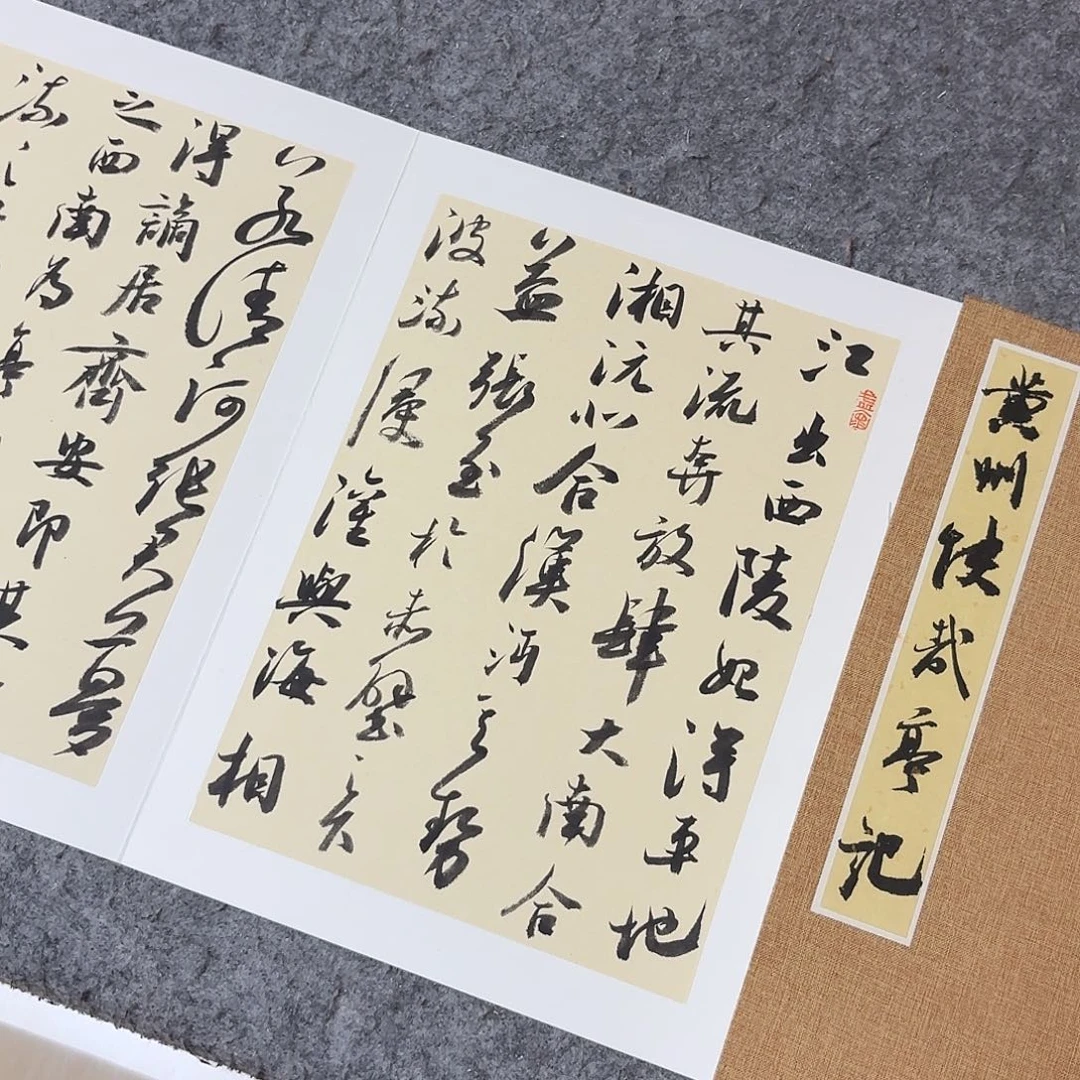 黄州快哉亭记
江出西陵始得平地
其流奔放肆大南合
湘沅北合漢沔其勢
益張至於赤壁之下
波流浸灌與海相
若清河張君夢
得謫居齊安即其
之西南為亭
流之